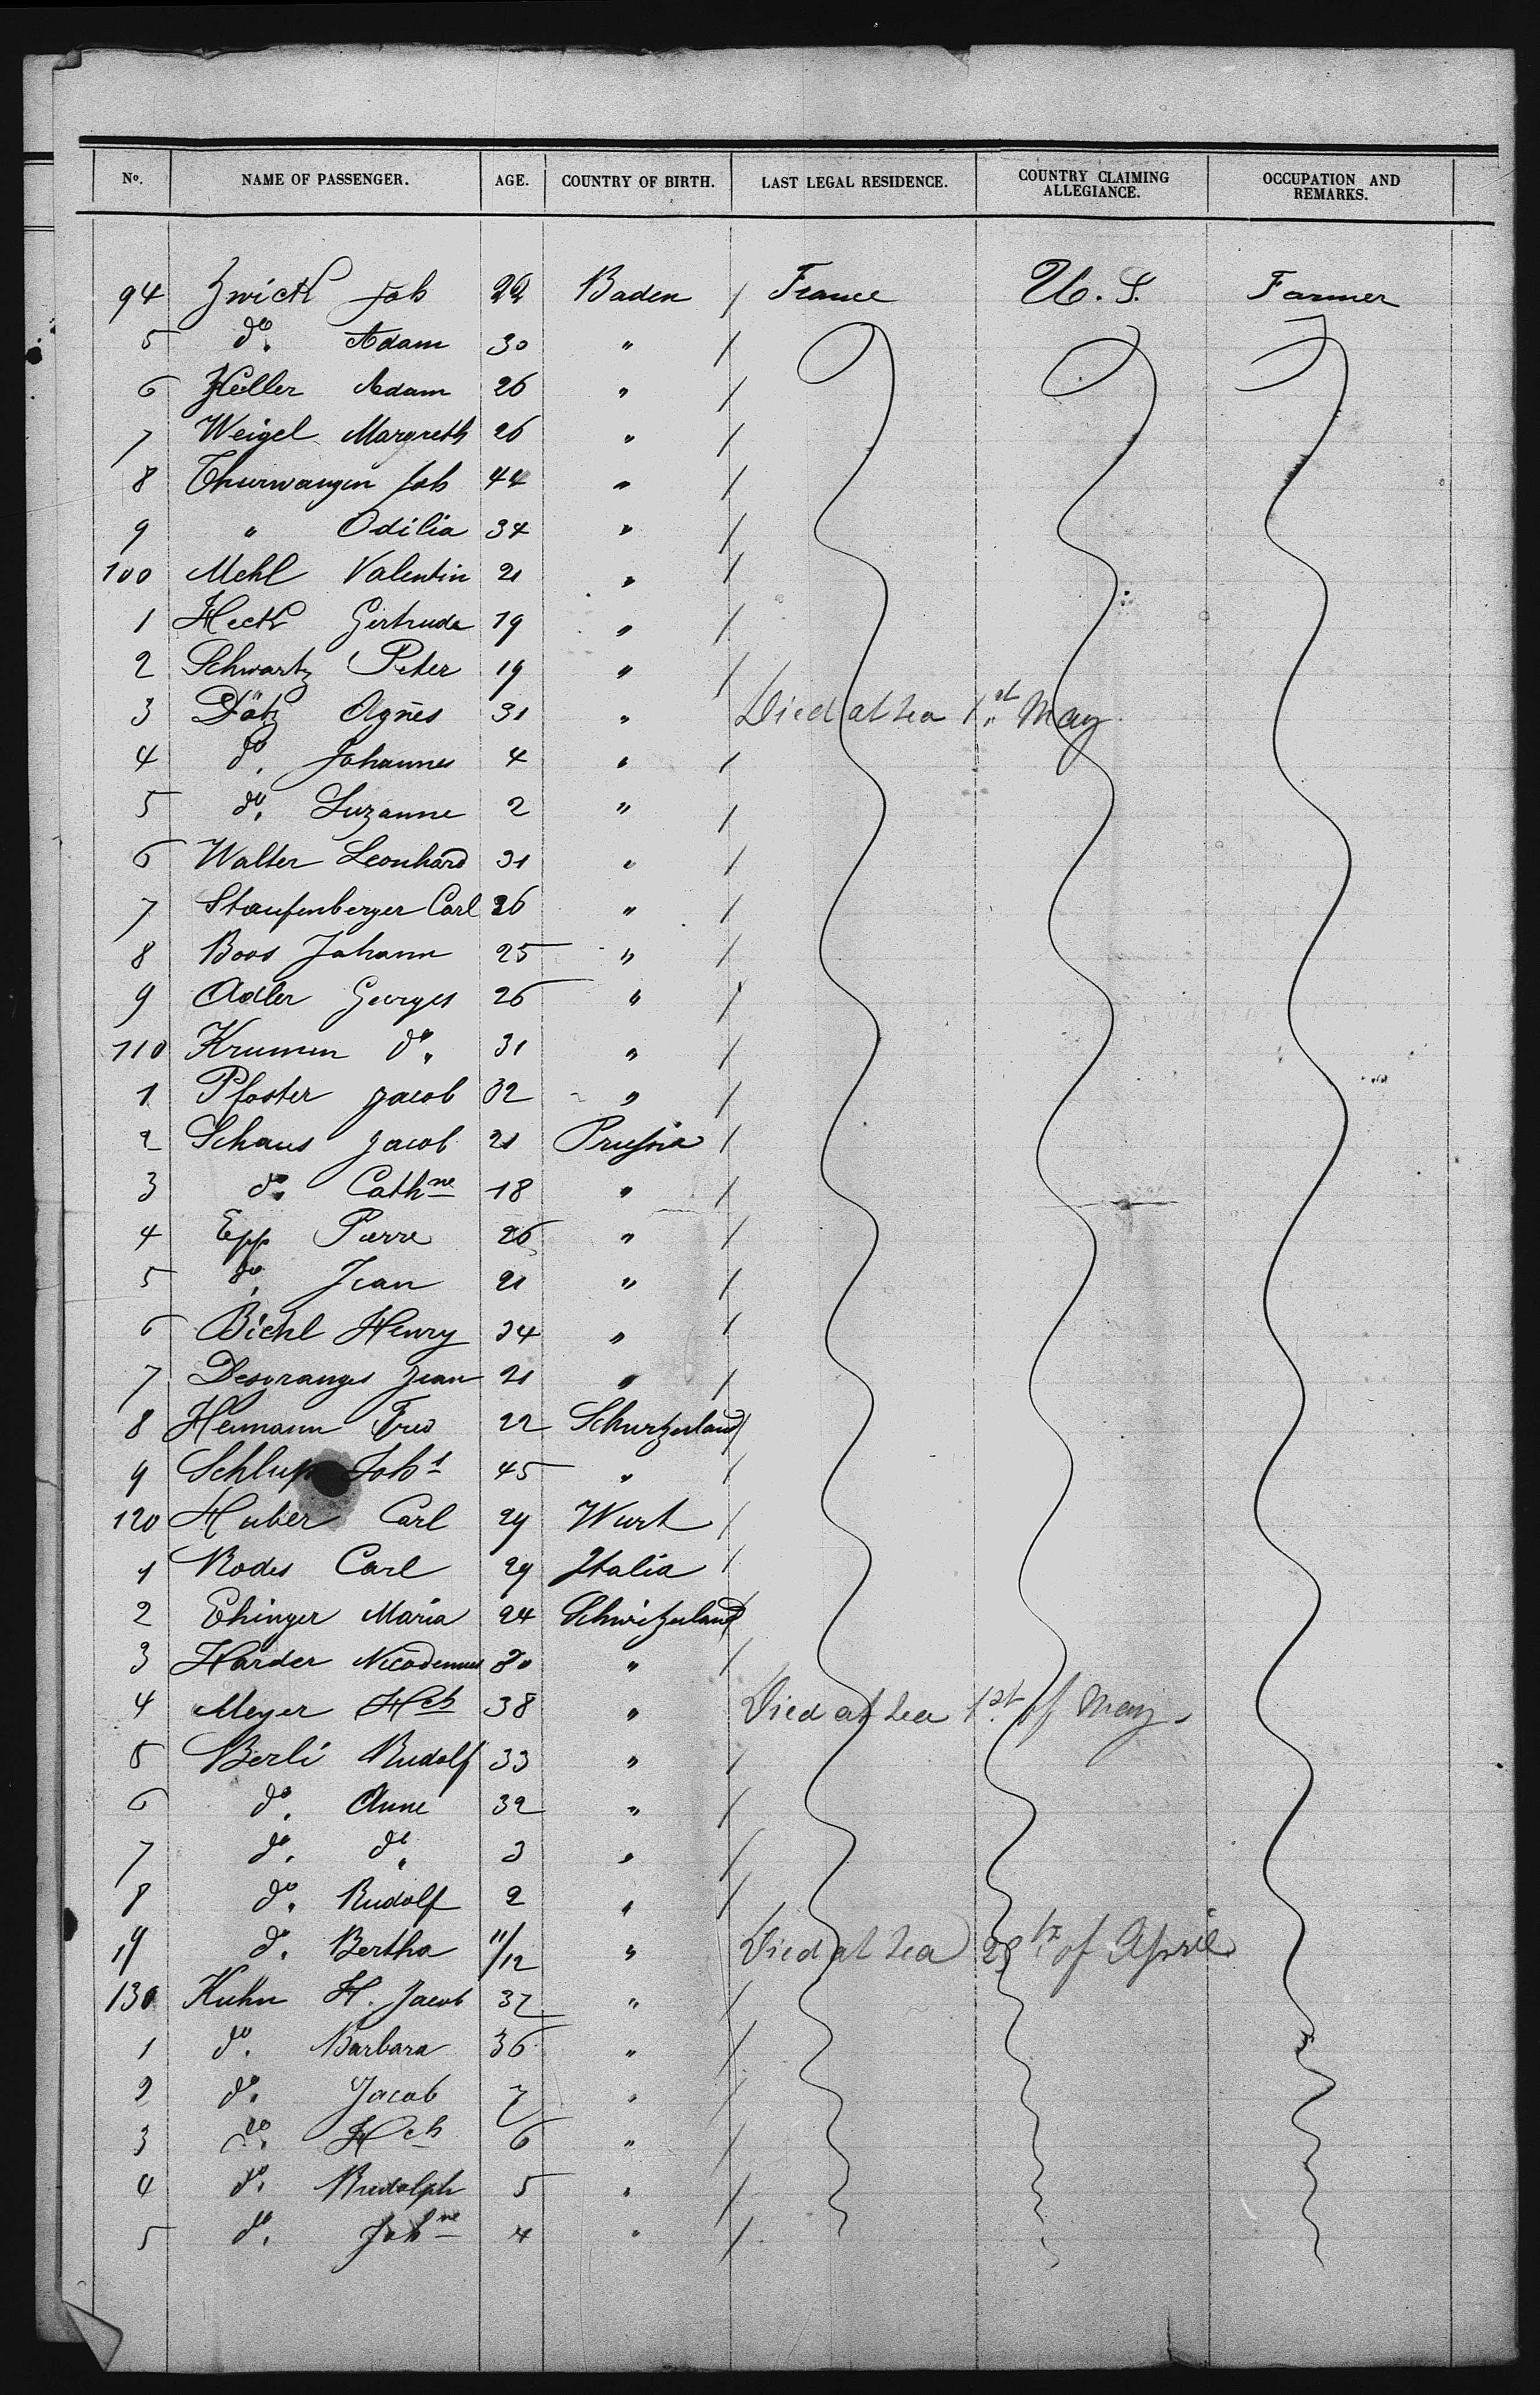 No. NAME OF PASSENGER. AGE. COUNTRY OF BIRTH. LAST LEGAL RESIDENCE. COUNTRY CLAIMING ALLEGIANCE. OCCUPATION AND REMARKS.
94 Zwick Joh 22 Baden / France U. S. Farmer
5 do. Adam 30 " /
6 Keller Adam 26 " /
7 Weigel Margreth 26 " /
8 Thurwangen Joh 44 " /
9 " Odilia 34 " /
100 Mehl Valentin 21 " /
1 Heck Gertrude 19 " /
2 Schwartz Peter 19 " /
3 Dötz Agnes 31 " Died at Sea 1st May
4 do. Johannes 4 " /
5 do. Suzanne 2 " /
6 Walter Leonhard 31 " /
7 Staufenberger Carl 26 " /
8 Boos Johann 25 " /
9 Adler Georges 26 " /
110 Krumm do. 31 " /
1 Pfoster Jacob 32 " /
2 Schaus Jacob 21 Prussia /
3 do. Cathne 18 " /
4 Epp Pierre 26 " /
5 do. Jean 21 " /
6 Biehl Henry 34 " /
7 Desgranges Jean 21 " /
8 Hemann Fred 22 Schwitzerland /
9 Schlup Johs 45 " /
120 Huber Carl 29 Wurt /
1 Rodes Carl 29 Italia /
2 Ehinger Maria 24 Schwitzerland /
3 Harder Nicodemus 30 " /
4 Meyer Hch 38 " Died at Sea 1st of May
5 Berli Rudolf 33 " /
6 do. Anne 32 " /
7 do. do. 3 " /
8 do. Rudolf 2 " /
19 do. Bertha 11/12 " Died at Sea 28th of April
130 Kuhn H. Jacob 37 " /
1 do. Barbara 36 " /
2 do. Jacob 7 " /
3 do. Hch 6 " /
4 do. Rudolph 5 " /
5 do. Johne 4 " /